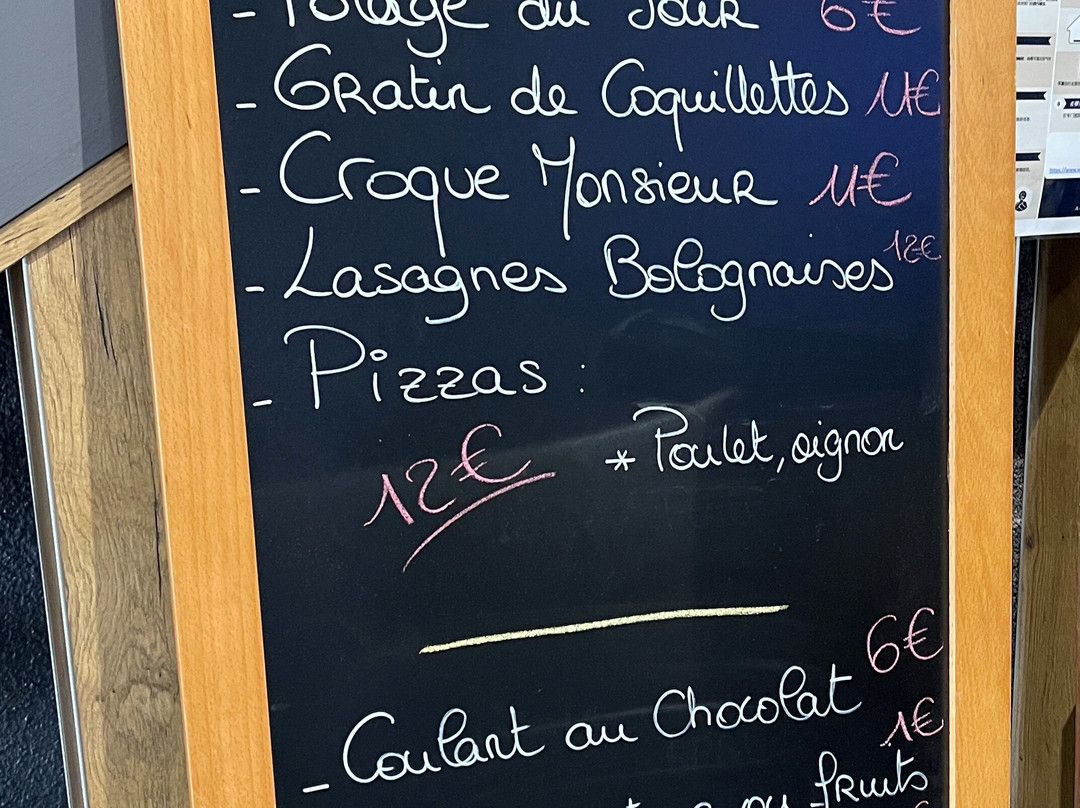 - Potage du Jour 6€
- GRatin de Coquillettes 11€
- Croque Monsieur 11€
- Lasagnes Bolognaises 12€
- Pizzas :
12€ * Poulet, oignon
6€
- Coulant au Chocolat
1€
ou fruits